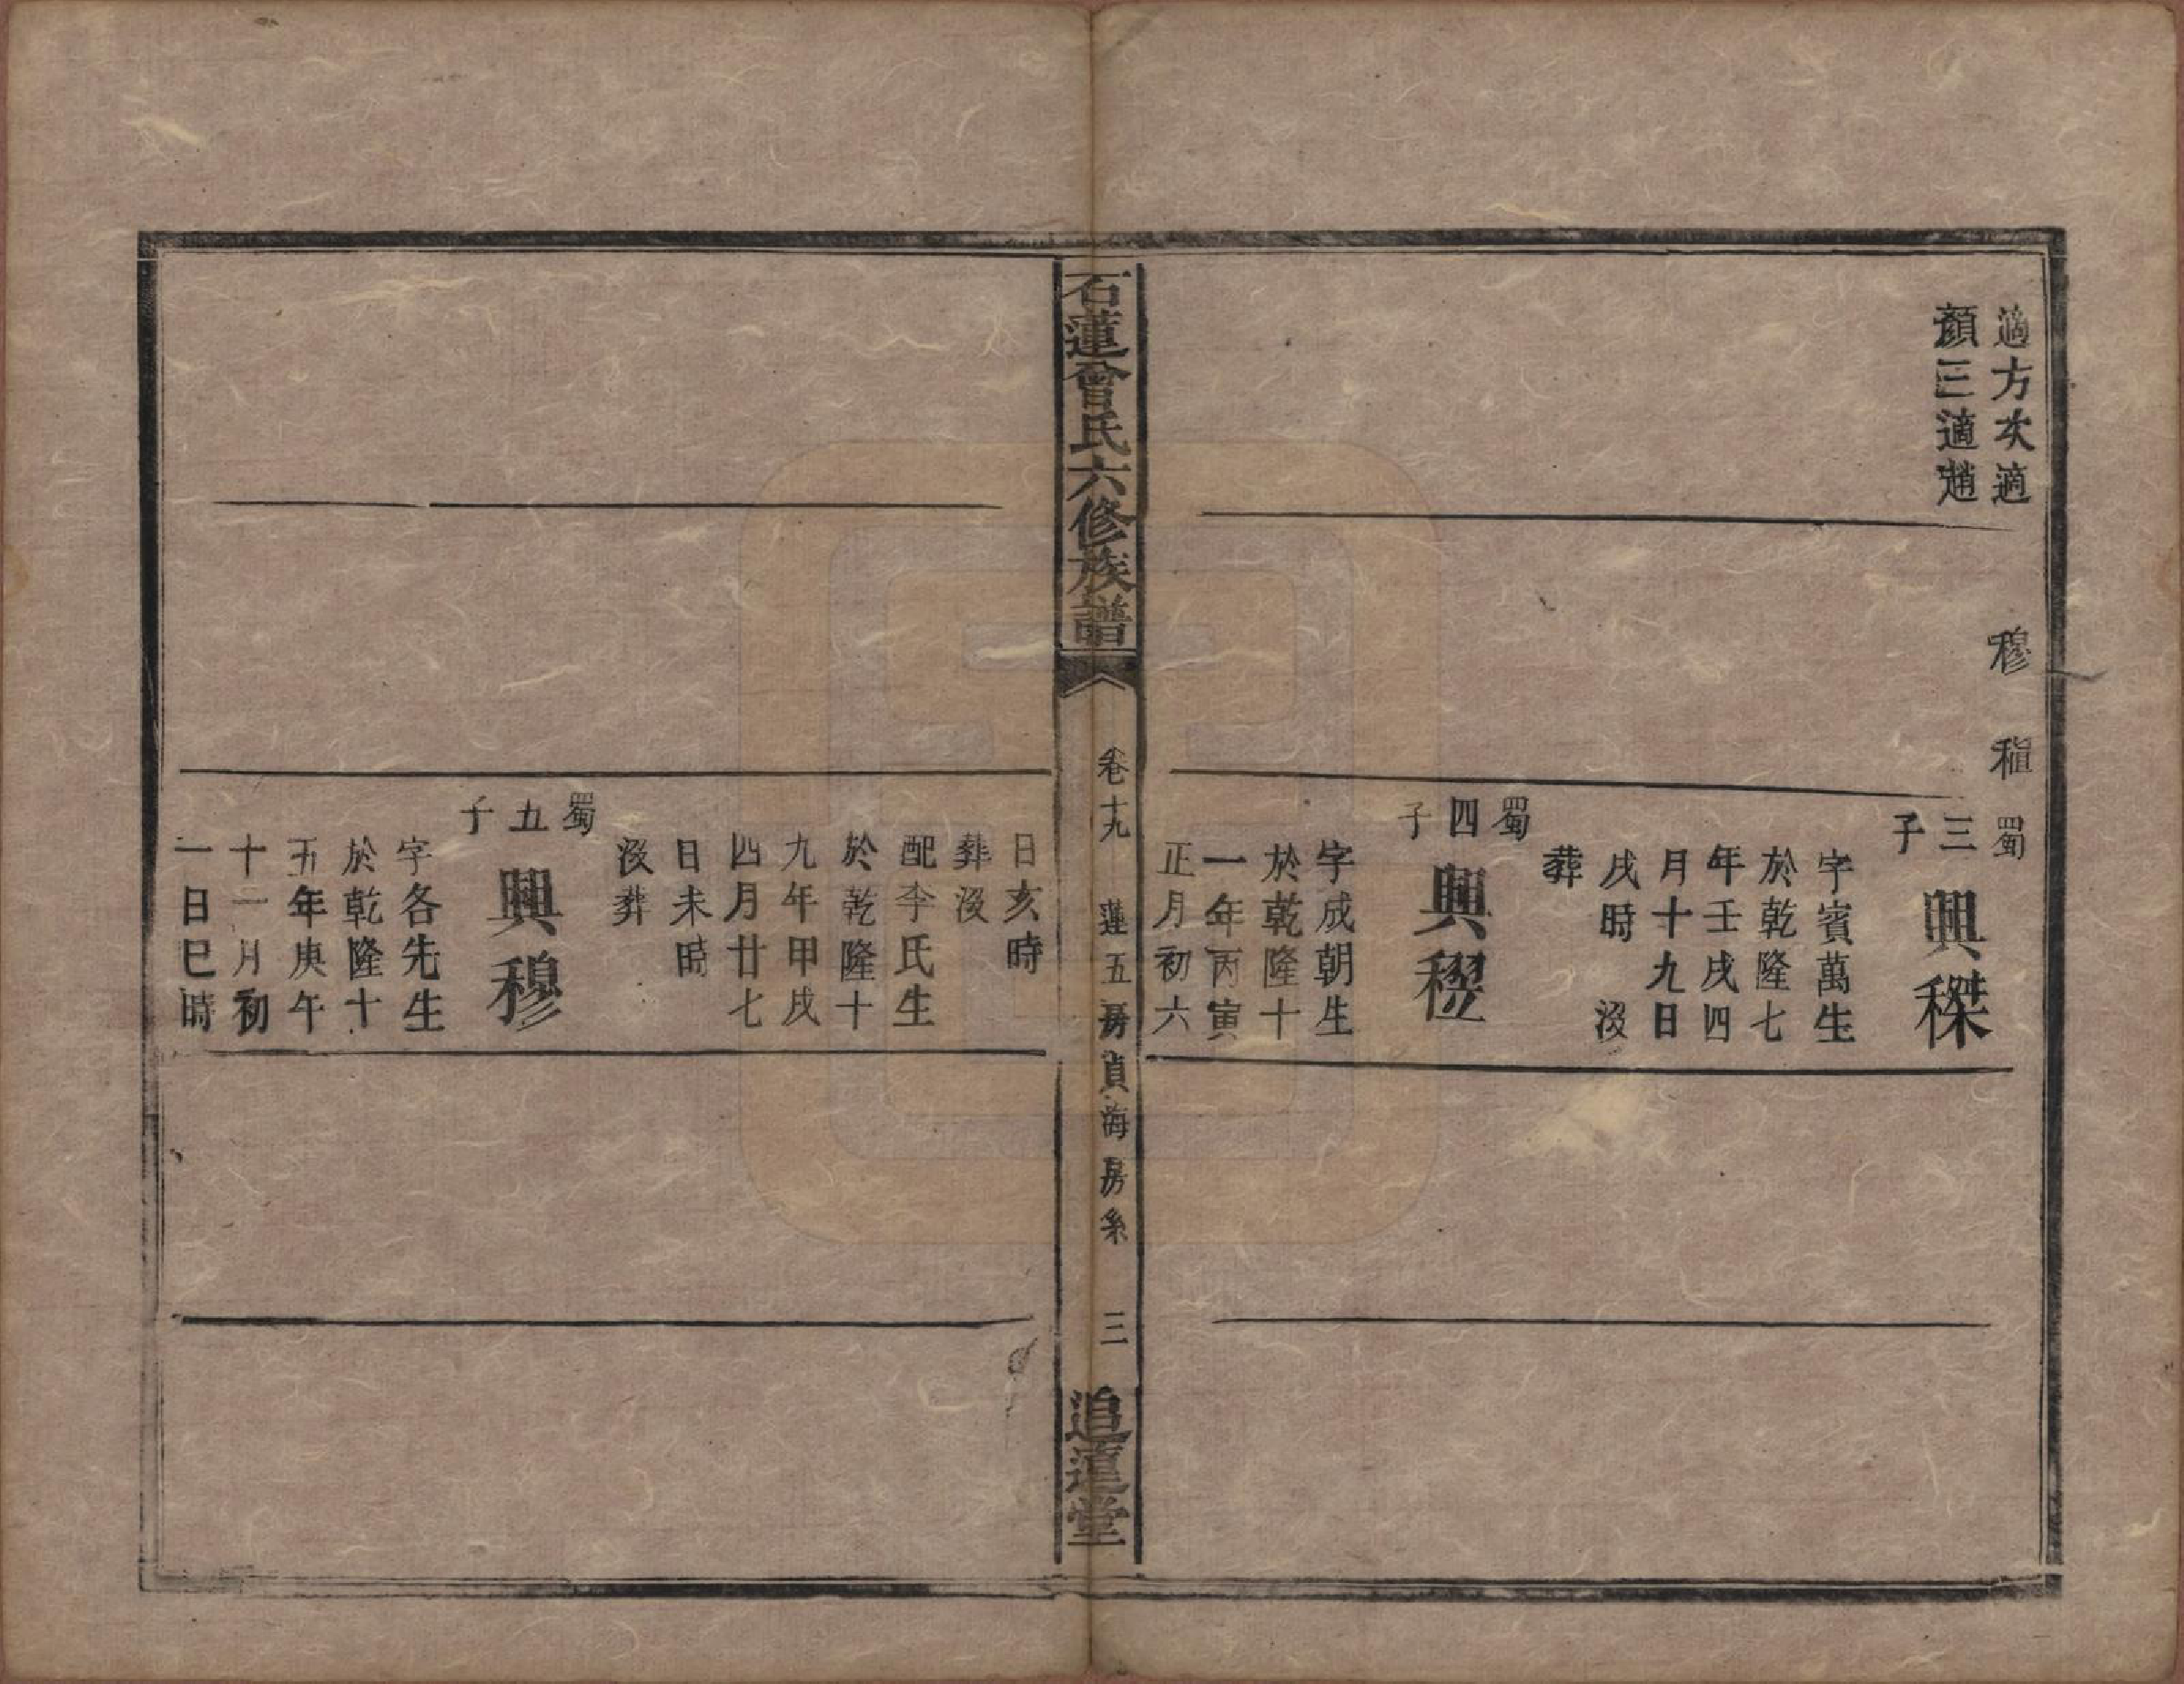 適方次適
顏三適趙
穆 稙
蜀三子
興榤
字賓萬生
於乾隆七
年壬戌四
月十九日
戌時 沒
葬
蜀四子
字成朝生
於乾隆十
一年丙寅
正月初六
石蓮曾氏六修族譜
卷十九 蓮五房貞海房系 三
追蓮堂
日亥時
葬沒
配李氏生
於乾隆十
九年甲戌
四月廿七
日未時
沒葬
蜀五子
興穆
字各先生
於乾隆十
五年庚午
十一月初
一日巳時